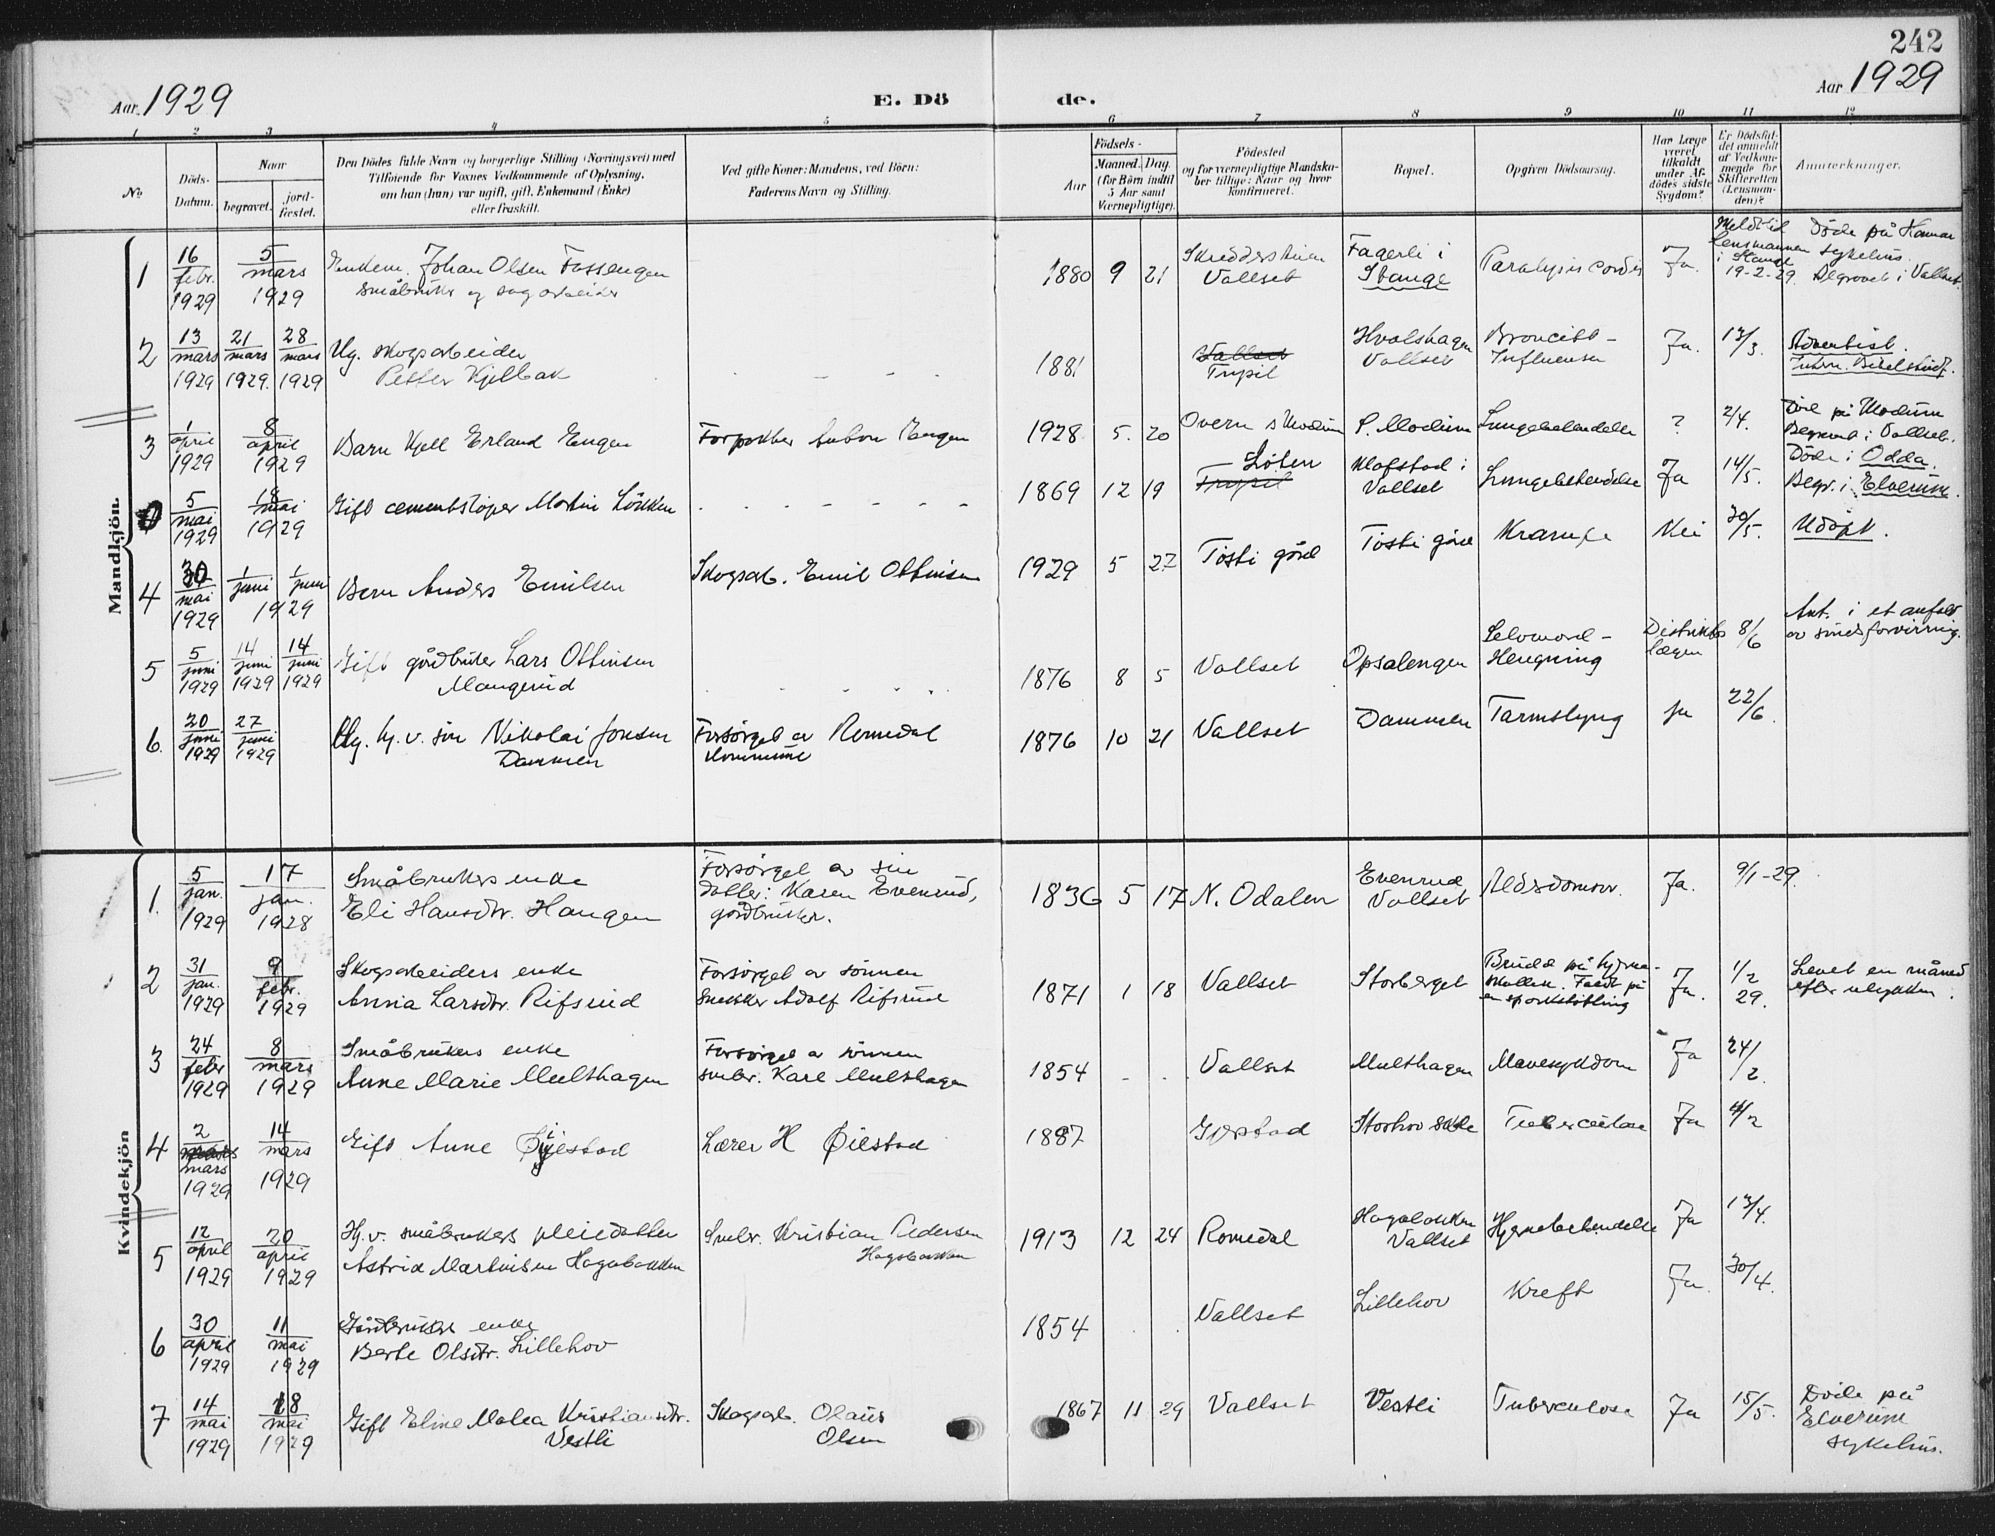 242
Aar 1929
E. Döde.
Aar 1929
1 2 3 4 5 6 7 8 9 10 11 12
No
Döds-Datum.
Naar
begravet.
jordfæstet.
Den Dödes fulde Navn og borgerlige Stilling (Næringsvei) med
Tilföiende for Voxnes Vedkommende af Oplysning,
om han (hun) var ugift, gift, Enkemand (Enke)
eller fraskilt.
Ved gifte Koner: Mandens, ved Börn:
Faderens Navn og Stilling.
Födsels-
Aar
Maaned. Dag.
(for Börn indtil
5 Aar samt
Værnepligtige).
Födested
og for værnepligtige Mandskaber tillige: Naar og hvor
konfirmeret.
Bopæl.
Opgiven Dödsaarsag.
Har Læge
været
tilkaldt
under Afdödes sidste
Sygdom?
Er Dödsfaldet anmeldt
af Vedkommende for
Skifteretten
(Lensmanden)?
Anmærkninger.
Mandkjön.
1
16 febr. 1929
5 mars 1929
Enkem. Johan Olsen Fossengen
småbruker og sagarbeider
1880 9 21
Vallset
Fagerli i
Stange
Paralysis cordis
Ja.
Meldt til
Lensmannen
i Stange
19-2-29.
Döde på Hamar
sykehus.
Begravet i Vallset.
2
13 mars 1929
21 mars 1929.
28 mars 1929
Ug. skogsarbeider
Petter Kjelbak
1881
Vallset
Trysil
Hvalshagen
Vallset
Broncitt-
Influensa
Ja.
13/3.
Adventist.
Intern. Bibelstud.
3
1 april 1929
8 april 1929
Barn Kjell Erland Engen
Forpakter Anton Engen
1928 5. 20
Overn s Modum
P. Modum
Lungebetendelse
?
2/4.
Död på Modum
Begravet i Vallset.
0
5 mai 1929
18 mai 1929
Gift cementstöper Martin Lökken
1869 12 19
Löten
Trysil
Klafstad i
Vallset
Lungebetendelse
Ja
14/5.
Döde i Odda.
Begr. i Elverum.
4
30 mai 1929
1 juni 1 juni 1929
Barn Anders Emilsen
Skogsarb. Emil Ottinsen
1929 5 27
Tosti gård
Tosti gård
Krampe
Nei
30/5.
Udöpt.
5
5 juni 1929
14 juni 1929
14 juni 1929
Gift gårdbruker Lars Ottinsen
Mangerud
1876 8 5
Vallset
Opsalengen
Selvmord-
Hengning
Distriktslægen
8/6
Ant. i et anfald
av sinnsforvirring.
6.
20 juni 1929
27 juni 1929
Ug. h.v. sön Nikolai Jonsen
Dammen
Forsörget av Romedal
kommune
1876 10 21
Vallset
Dammen
Tarmslyng
ja
22/6.
Kvindekjön
1.
5 jan. 1929
17 jan. 1928
Småbrukers enke
Eli Hansdtr. Haugen
Forsörget av sin
datter: Karen Evenrud,
gårdbruker.
1836 5 17
N. Odalen
Evenrud
Vallset
Aldersdomssv.
Ja.
9/1-29.
2
31 jan. 1929
9 febr. 1929
Skogsarbeiders enke
Anna Larsdtr. Rifsrud
Forsörget av sönnen
snekker Adolf Rifsrud
1871 1 18
Vallset
Storberget
Brudd på hjerneskallen. Faldt på
en sparkstötting
Ja.
1/2 29.
Levet en måned
efter ulykken.
3
24 febr 1929
8 mars 1929
Småbrukers enke
Anne Marie Multhagen
Forsörget av sönnen
småbr. Karl Multhagen
1854
Vallset
Multhagen
Mavesykdom
Ja
24/2.
4
2 mars 1929
14 mars 1929
Gift Anne Öiestad
Lærer H Öiestad
1887
Storhov skole
Tuberculose
Ja
4/2
5
12 april 1929
20 april 1929
Hj.v. småbrukers pleiedatter
Astrid Martinsen Hagabakken
Småbr. Kristian Pedersen
Hagabakken
1913 12 24
Romedal
Hagabakken
Vallset
Hjernebetendelse
Ja
13/4.
6
30 april 1929
11 mai 1929
Gårdbrukers enke
Berte Olsdtr. Lillehov
1854
Vallset
Lillehov
Kreft
Ja.
30/4.
7
14 mai 1929
18 mai 1929
Gift Eline Malea Kristiansdtr.
Vestli
Skogsarb. Olaus
Olsen
1867 11 29
Vallset
Vestli
Tuberculose
Ja
15/5.
Döde på
Elverum
sykehus.